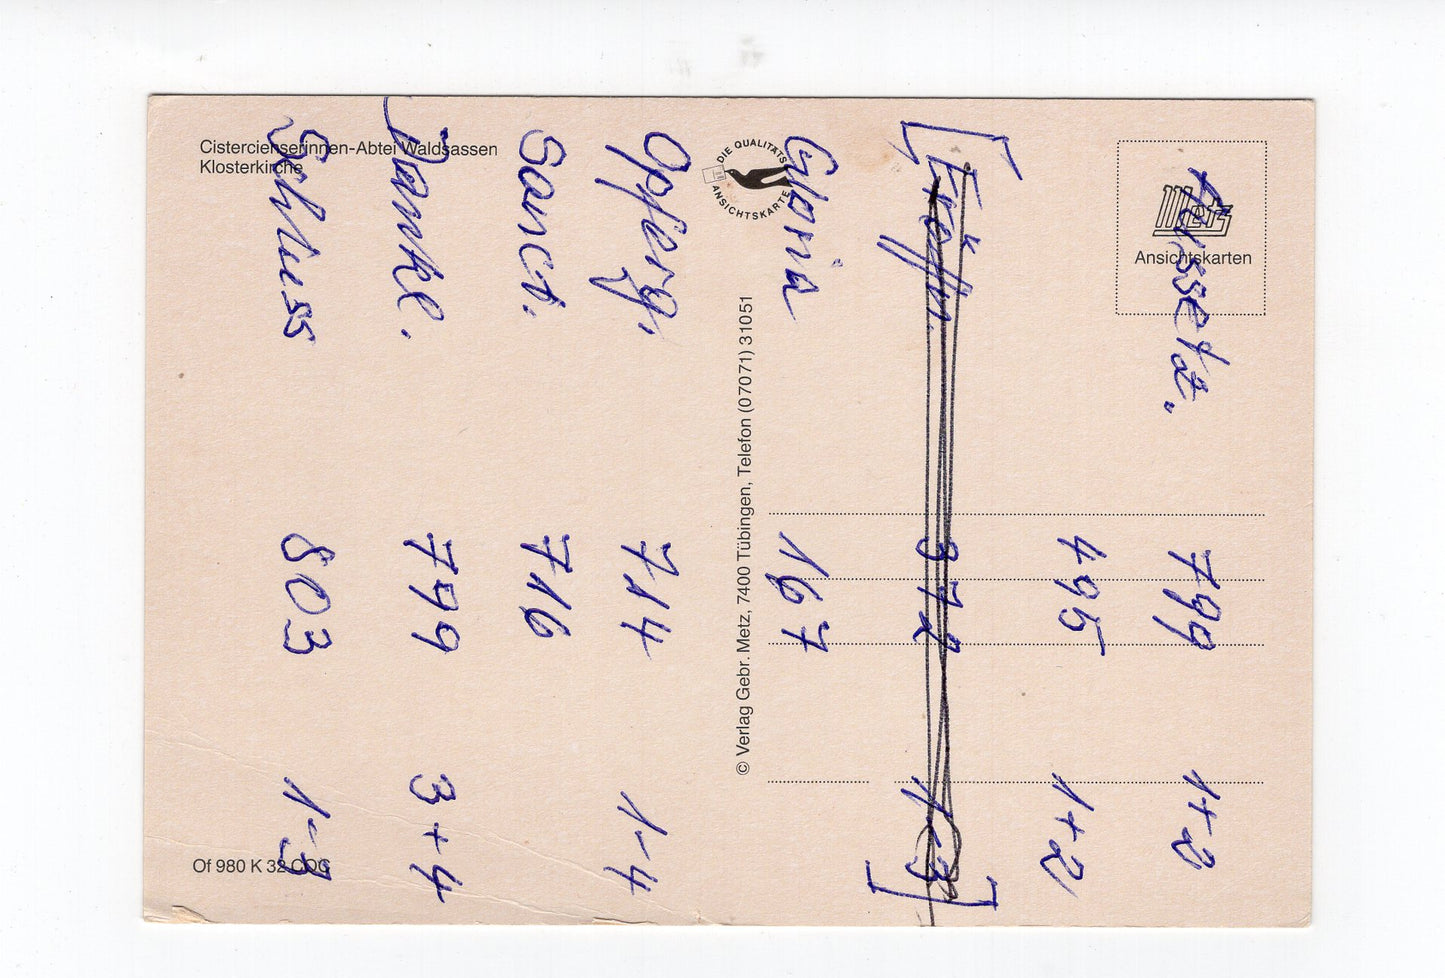 Cistercienserinnen-Abtei Waldsassen
Klosterkirche
DIE QUALITÄTS
ANSICHTSKARTE
Metz
Ansichtskarten
© Verlag Gebr. Metz, 7400 Tübingen, Telefon (07071) 31051
Of 980 K 32 COG
Aussetz. 799 1+2
495 1+2
[Eröffn. 372 1-3]
Gloria 167
Opferg. 714 1-4
Sanct. 716
Dankl. 799 3+4
Schluss 803 1-3